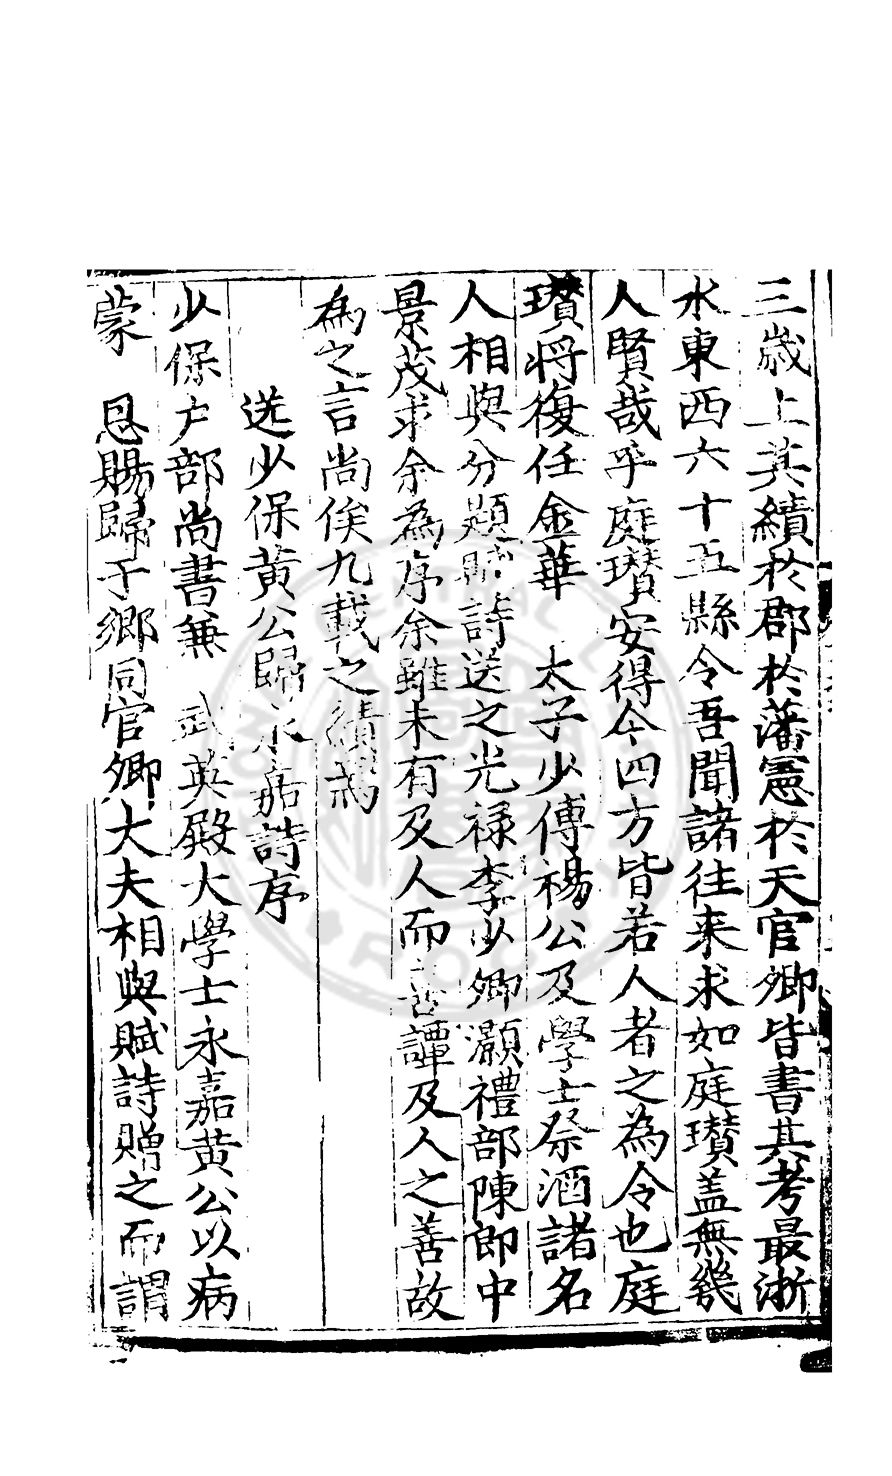 三歲上其績於郡於藩憲於天官卿皆書其考最浙
水東西六十五縣令吾聞諸往来求如庭瓚盖無幾
人賢哉乎庭瓚安得今四方皆若人者之為令也庭
瓚将復任金華　太子少傅楊公及學士祭酒諸名
人相與分題賦詩送之光禄李少卿灝禮部陳郎中
景茂求余為序余雖未有及人而喜譚及人之善故
為之言尚俟九載之績焉
送少保黄公歸永嘉詩序
少保户部尚書兼　武英殿大學士永嘉黄公以病
蒙　恩賜歸于鄉同官卿大夫相與賦詩贈之而謂